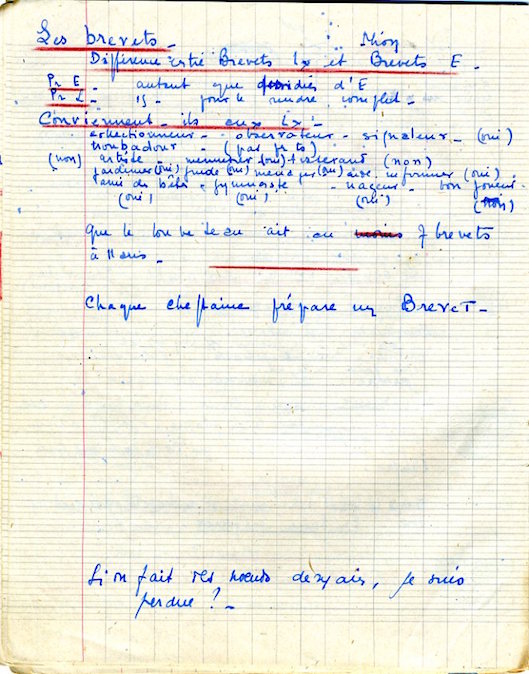 Les brevets -
Mioy
Différence entre Brevets Lx et Brevets E.
Pr E - autant que d'E
Pr L - 15 - pour le rendre complet -
Conviennent-ils aux Lx :-
collectionneur - observateur - signaleur - (oui)
troubadour - (pas prts)
(non) artiste - menuisier (oui) tisserand (non)
jardinier (oui) guide (oui) (oui) aide-infirmier (oui)
ami des bêtes - gymnaste - nageur - bon joueur -
(oui) (oui) (oui) (non)
Que le louveteau ait au moins 7 brevets
à 11 ans -
Chaque cheftaine prépare un BreveT -
Si on fait des noeuds demain, je suis
perdue ? -